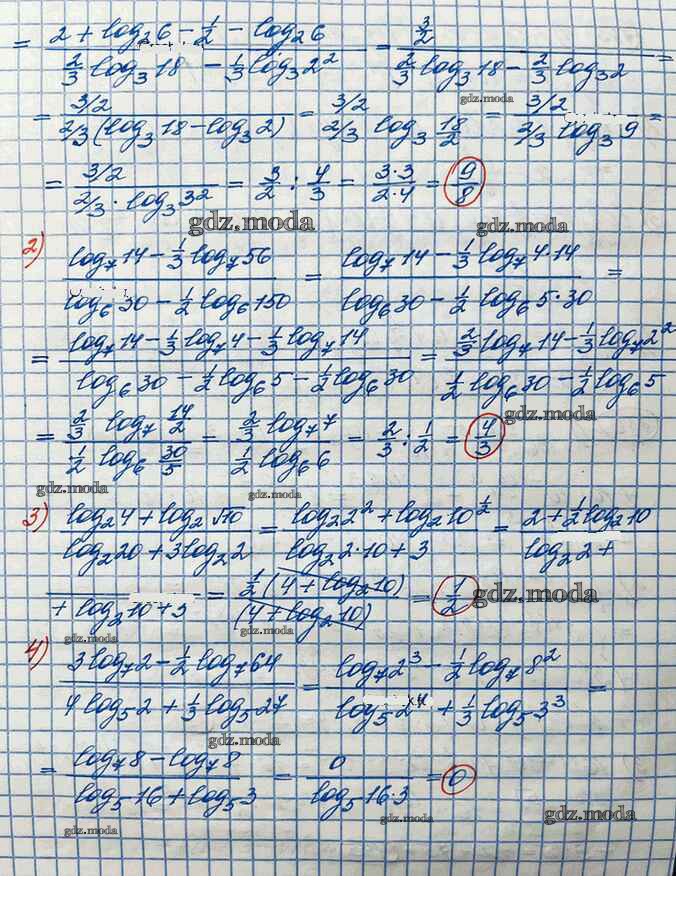 = (2 + log₂6 − 1/2 − log₂6) / (2/3 log₃18 − 1/3 log₃2²) = (3/2) / (2/3 log₃18 − 2/3 log₃2) =
gdz.moda
= (3/2) / (2/3(log₃18 − log₃2)) = (3/2) / (2/3 log₃ 18/2) = (3/2) / (2/3 log₃9) =
gdz.moda
= (3/2) / (2/3 · log₃3²) = 3/2 : 4/3 = (3·3)/(2·4) = 9/8
gdz.moda
2) (log₇14 − 1/3 log₇56) / (log₆30 − 1/2 log₆150) = (log₇14 − 1/3 log₇4·14) / (log₆30 − 1/2 log₆5·30) =
= (log₇14 − 1/3 log₇4 − 1/3 log₇14) / (log₆30 − 1/2 log₆5 − 1/2 log₆30) = (2/3 log₇14 − 1/3 log₇2²) / (1/2 log₆30 − 1/2 log₆5)
gdz.moda
= (2/3 log₇ 14/2) / (1/2 log₆ 30/5) = (2/3 log₇7) / (1/2 log₆6) = 2/3 : 1/2 = 4/3
gdz.moda
gdz.moda
3) (log₂4 + log₂√10) / (log₂20 + 3log₂2) = (log₂2² + log₂10^(1/2)) / (log₂2·10 + 3) = (2 + 1/2 log₂10) / (log₂2 +
+ log₂10 + 3) = (1/2(4 + log₂10)) / (4 + log₂10) = 1/2
gdz.moda
gdz.moda
gdz.moda
4) (3log₇2 − 1/2 log₇64) / (4log₅2 + 1/3 log₅27) = (log₇2³ − 1/2 log₇8²) / (log₅2⁴ + 1/3 log₅3³) =
gdz.moda
= (log₇8 − log₇8) / (log₅16 + log₅3) = 0 / (log₅16·3) = 0
gdz.moda
gdz.moda
gdz.moda